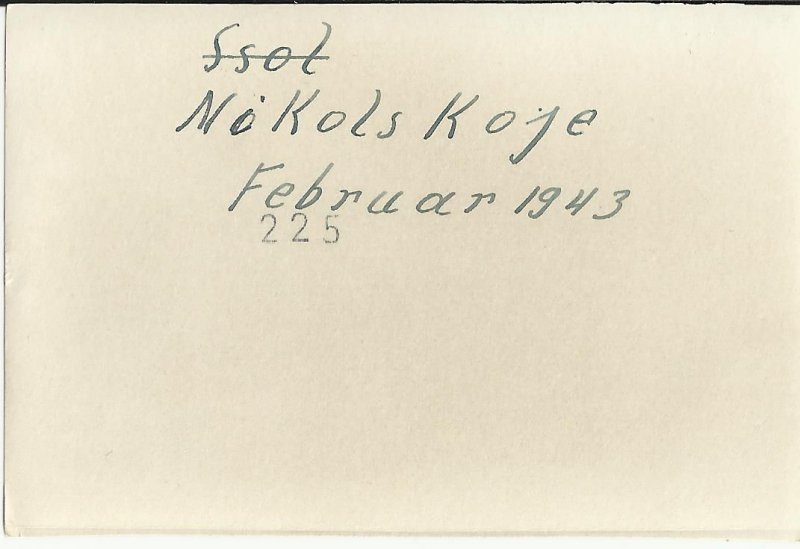 Ssol
Nikols Koje
Februar 1943
225